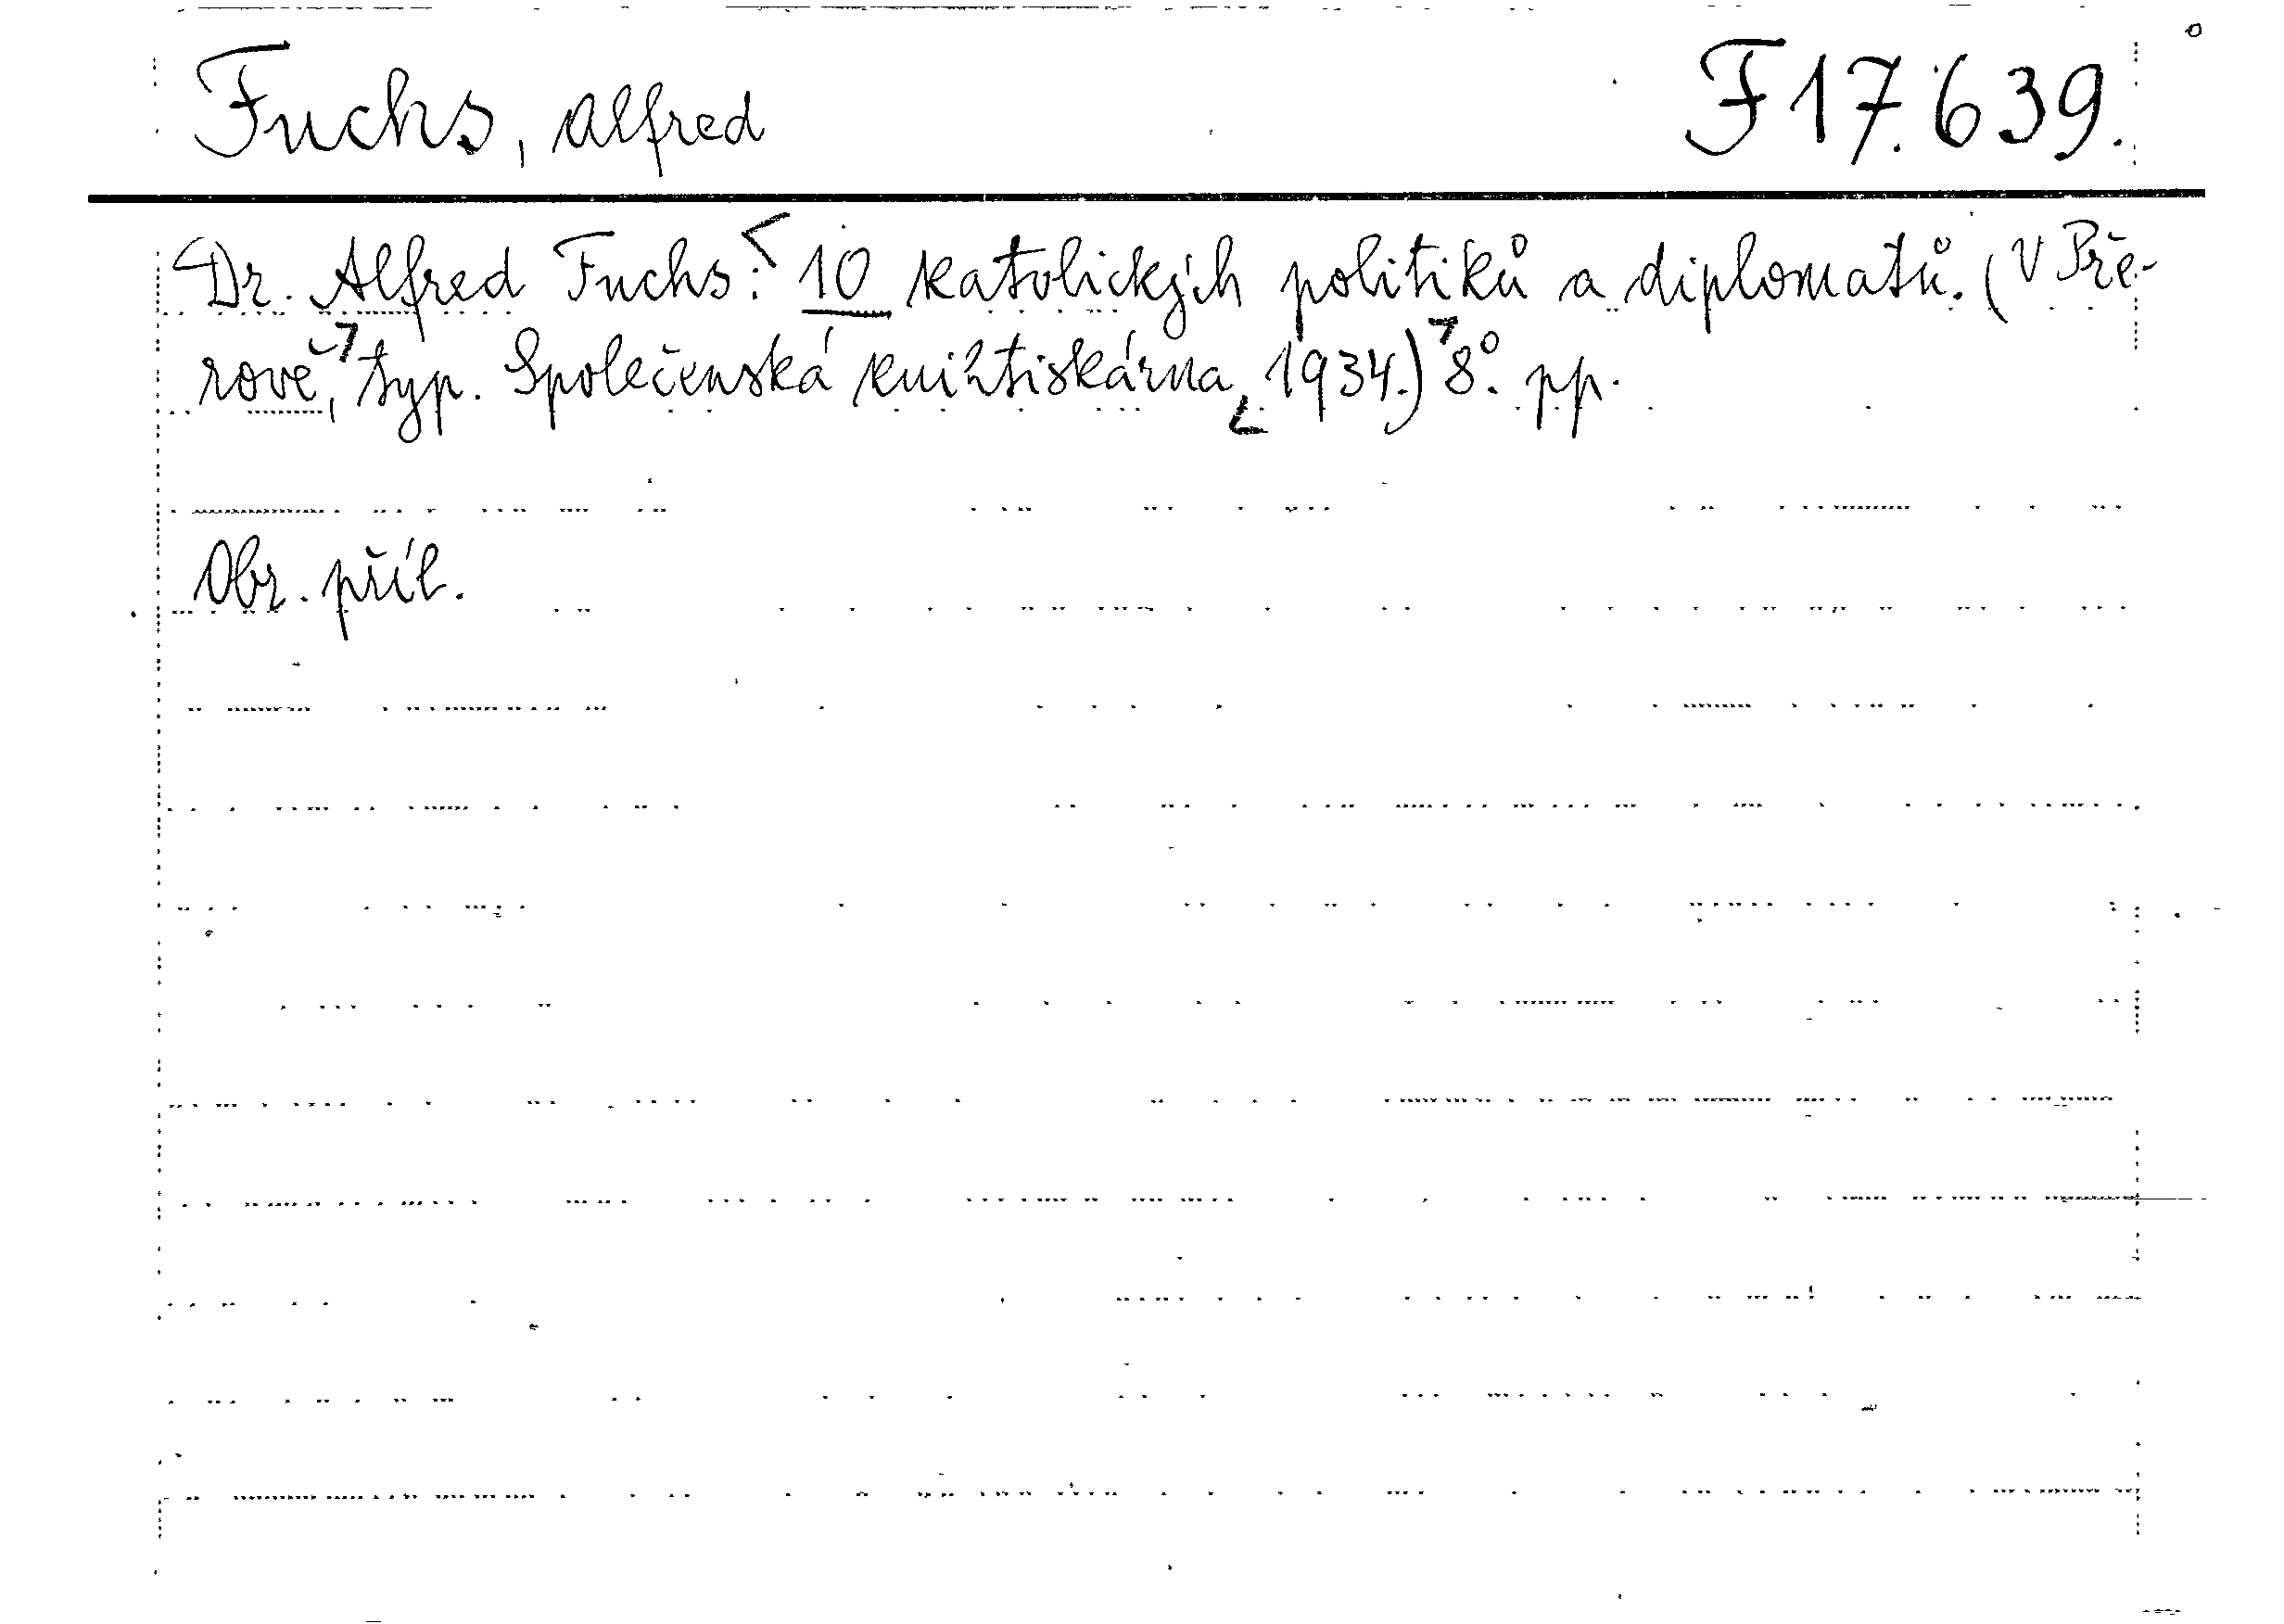 Fuchs, Alfred
F 17.639.
Dr. Alfred Fuchs: 10 katolických politiků a diplomatů. (V Pře-
rově, typ. Společenská knihtiskárna, 1934.) 8°. pp.
Obr. příl.